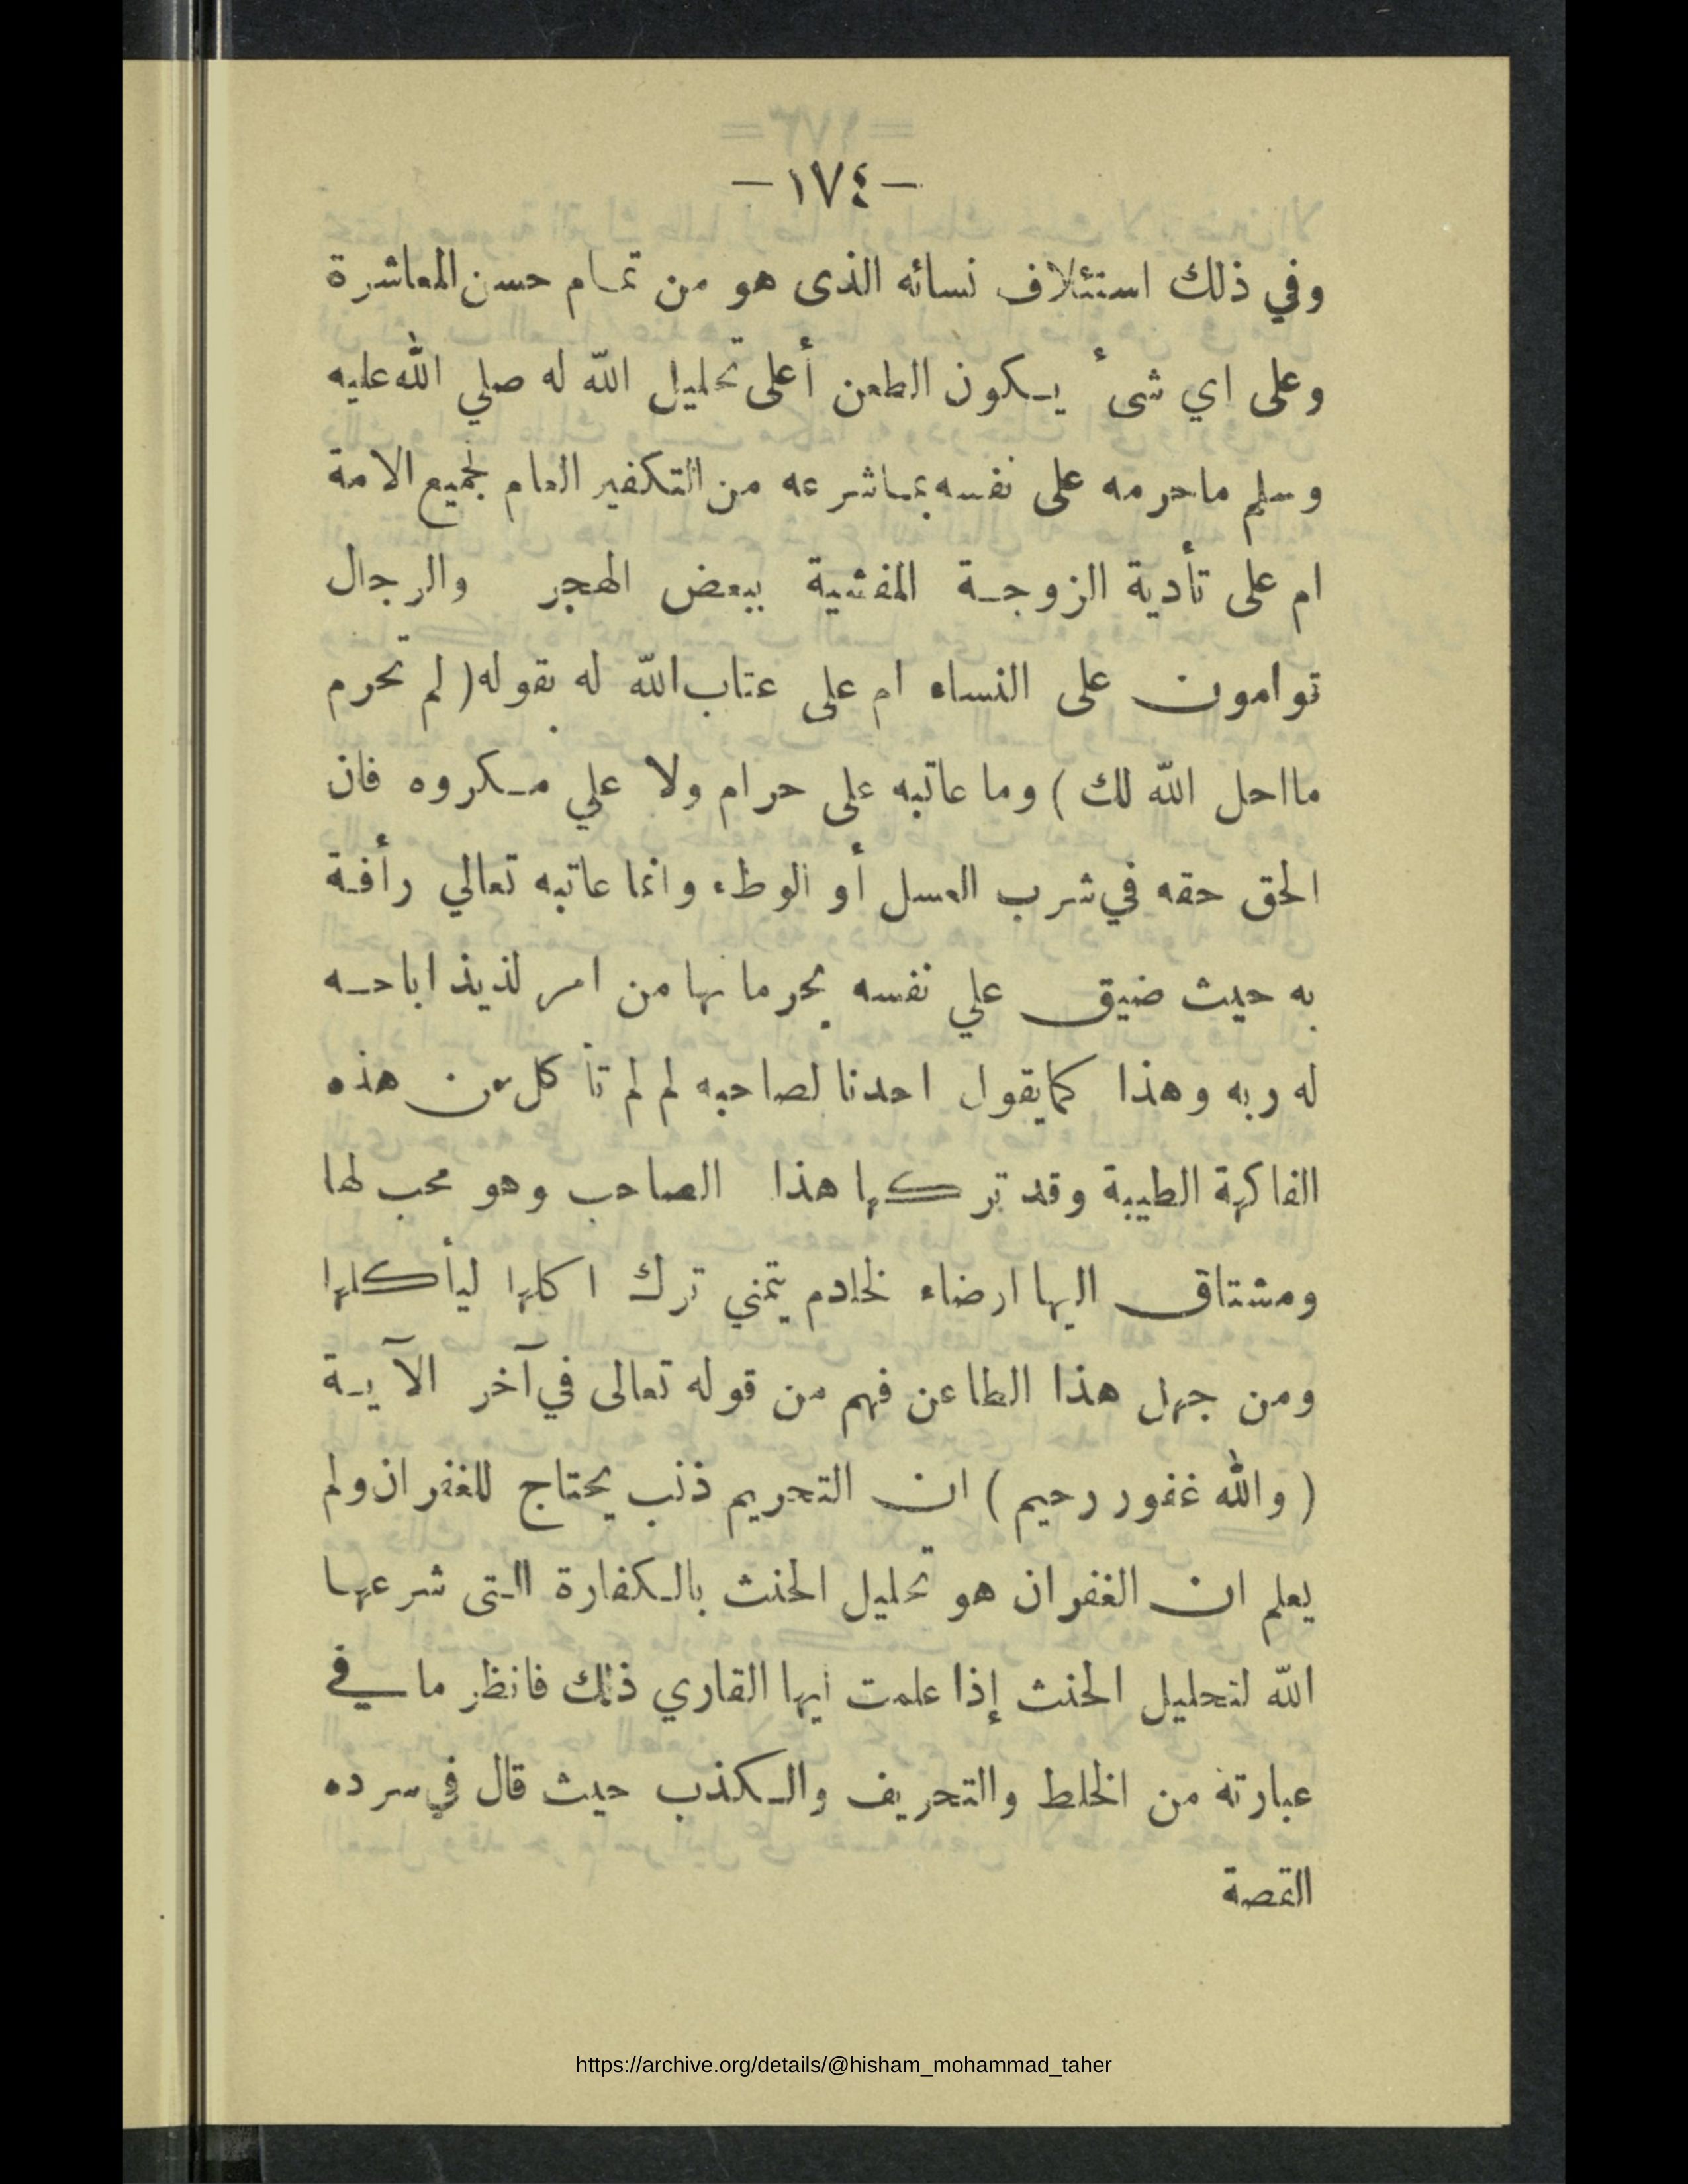 -١٧٤-
وفي ذلك استئلاف نسائه الذى هو من تمام حسن المعاشرة
وعلى اي شىء يكون الطعن أعلى تحليل الله له صلي الله عليه
وسلم ماحرمه على نفسه بمباشرعه من التكفير العام لجميع الامة
ام على تأدية الزوجة المفشية ببعض الهجر والرجال
توامون على النساء ام على عتاب الله له بقوله ( لم تحرم
مااحل الله لك ) وما عاتبه على حرام ولا علي مكروه فان
الحق حقه في شرب العسل أو الوطء وانما عاتبه تعالي رأفة
به حيث ضيق علي نفسه بحرمانها من امر لذيذ اباحه
له ربه وهذا كمايقول احدنا لصاحبه لم لم تأكل من هذه
الفاكهة الطيبة وقد تركها هذا الصاحب وهو محب لها
ومشتاق اليها ارضاء لخادم يتمني ترك اكلها ليأكلها
ومن جهل هذا الطاعن فهم من قوله تعالى في آخر الآية
( والله غفور رحيم ) ان التحريم ذنب يحتاج للغفران ولم
يعلم ان الغفران هو تحليل الحنث بالكفارة التى شرعها
الله لتحليل الحنث إذا علمت ايها القاري ذلك فانظر ما في
عبارته من الخلط والتحريف والكذب حيث قال في سرده
القصة
https://archive.org/details/@hisham_mohammad_taher